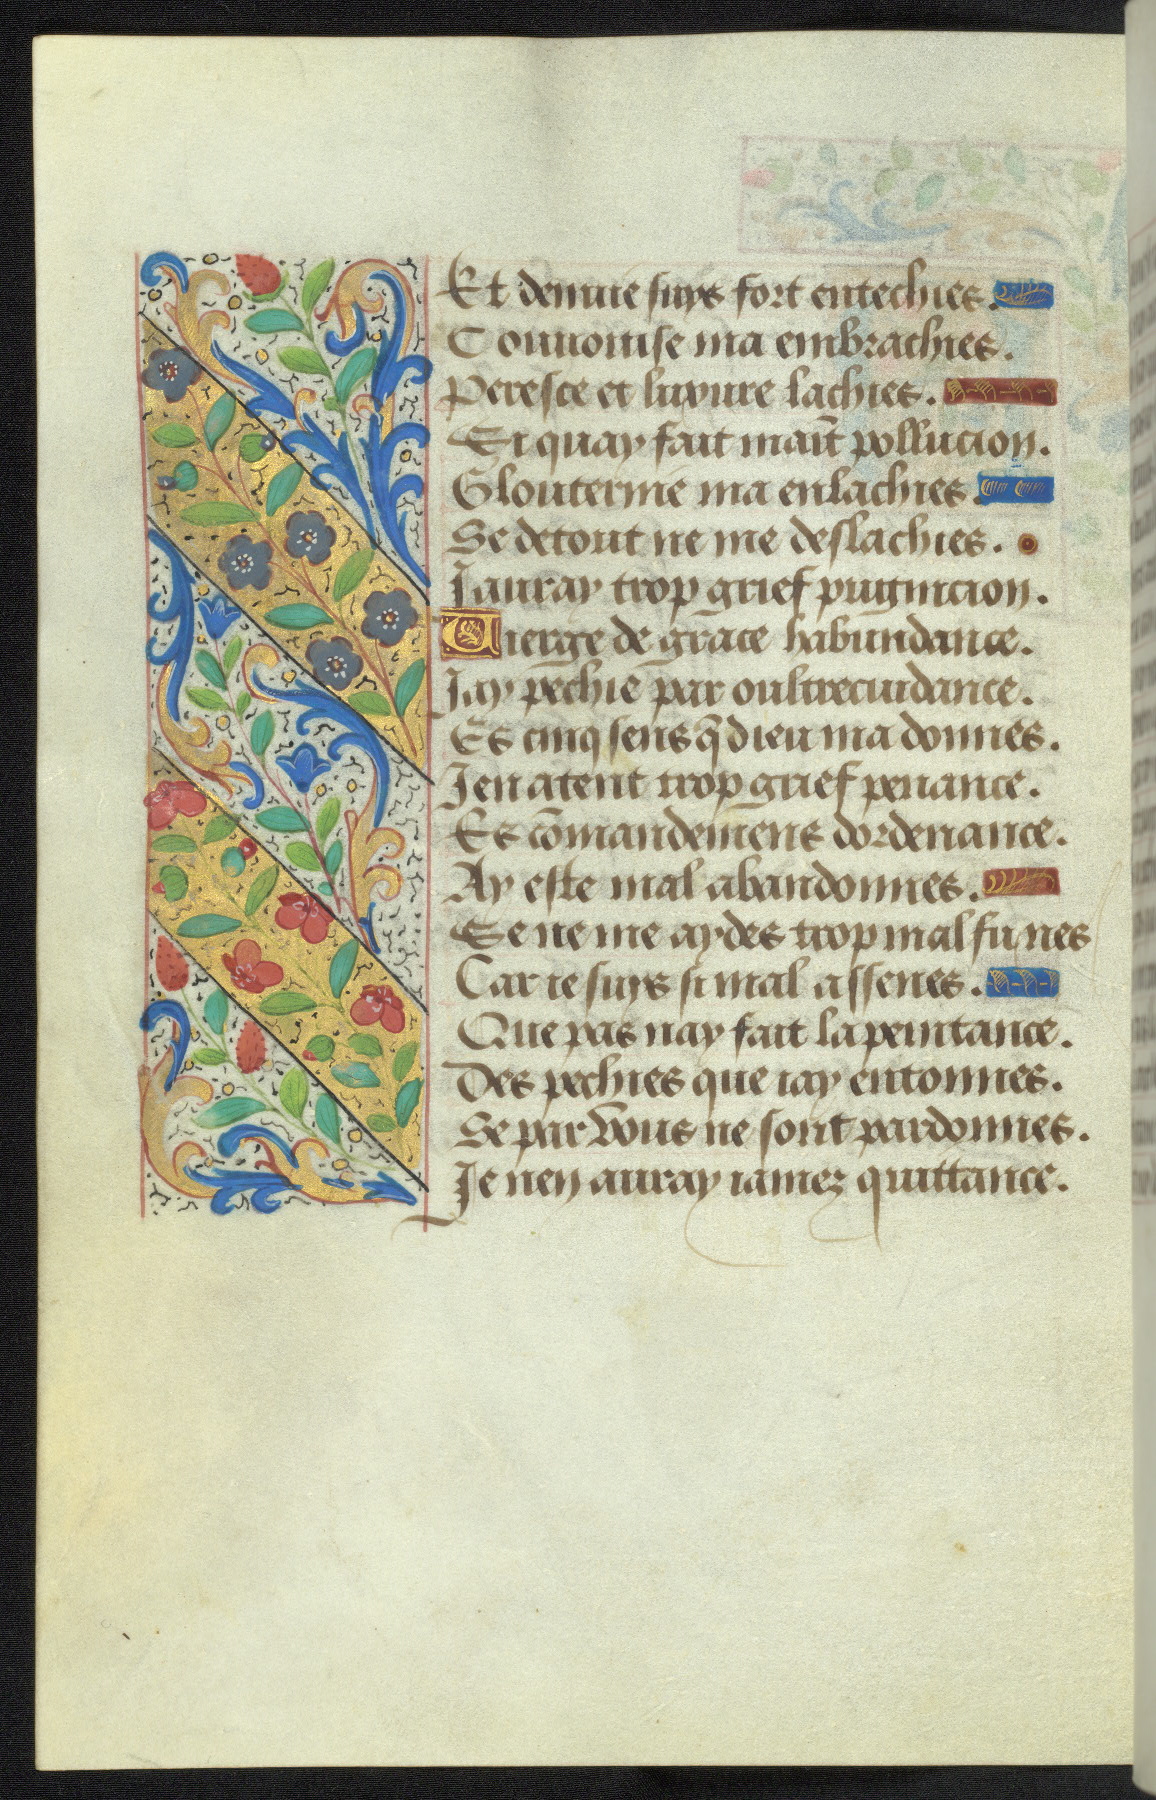 Et denuie suys fort entechies.
Conuoitise ma embrachies.
Peresce et luxure lachies.
Et quay fait mait̄ pollucion.
Glouternie ma enlachies.
Se de tout ne me deslachies.
Jauray trop grief pugnicion.
Vierge de grace habundance.
Jay pechie par oultrecuidance.
Es cinq sens q̄ dieu ma donnes.
Jen atent trop grief penance.
Es cōmandemens dordenance.
Ay este mal abandonnes.
Se ne me aydes trop mal fu nes
Car ie suys si mal assenes.
Que pas nay fait la penitance.
Des pechies que iay entonnes.
Se par vous ne sont pardonnes.
Je nen auray iamez quittance.